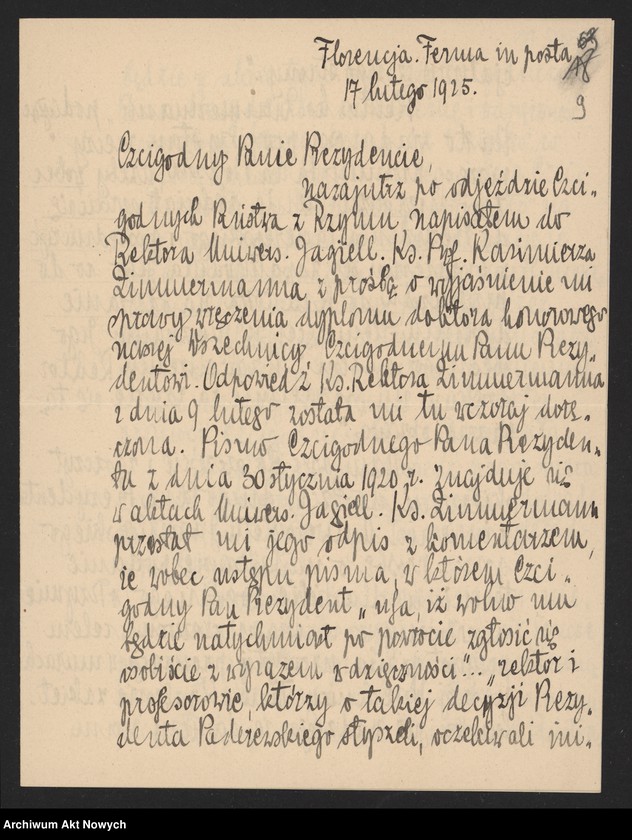 Florencja. Ferma in posta
17 lutego 1925.
9
Czcigodny Panie Prezydencie,
nazajutrz po odjeździe Czci-
godnych Państwa z Rzymu, napisałem do
Rektora Uniwers. Jagiell. Ks. Prof. Kazimierza
Zimmermanna, z prośbą o wyjaśnienie mi
sprawy wręczenia dyplomu doktora honorowego
naszej Wszechnicy Czcigodnemu Panu Prezy-
dentowi. Odpowiedź Ks. Rektora Zimmermanna
z dnia 9 lutego została mi tu wczoraj dorę-
czona. Pismo Czcigodnego Pana Prezyden-
ta z dnia 30 stycznia 1920 r. znajduje się
w aktach Uniwers. Jagiell. Ks. Zimmermann
przesłał mi jego odpis z komentarzem,
że wobec ustępu pisma, w którym Czci-
godny Pan Prezydent „ufa, iż wolno mu
będzie natychmiast po powrocie zgłosić się
osobiście z wyrazem wdzięczności"... „rektor i
profesorowie, którzy o takiej decyzji Prezy-
denta Paderewskiego słyszeli, oczekiwali mi-
Archiwum Akt Nowych